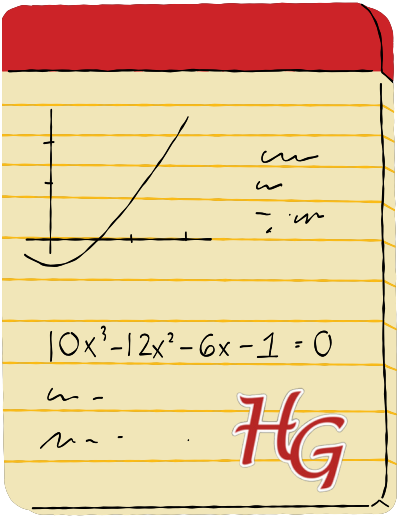 10x³-12x²-6x-1=0
HG